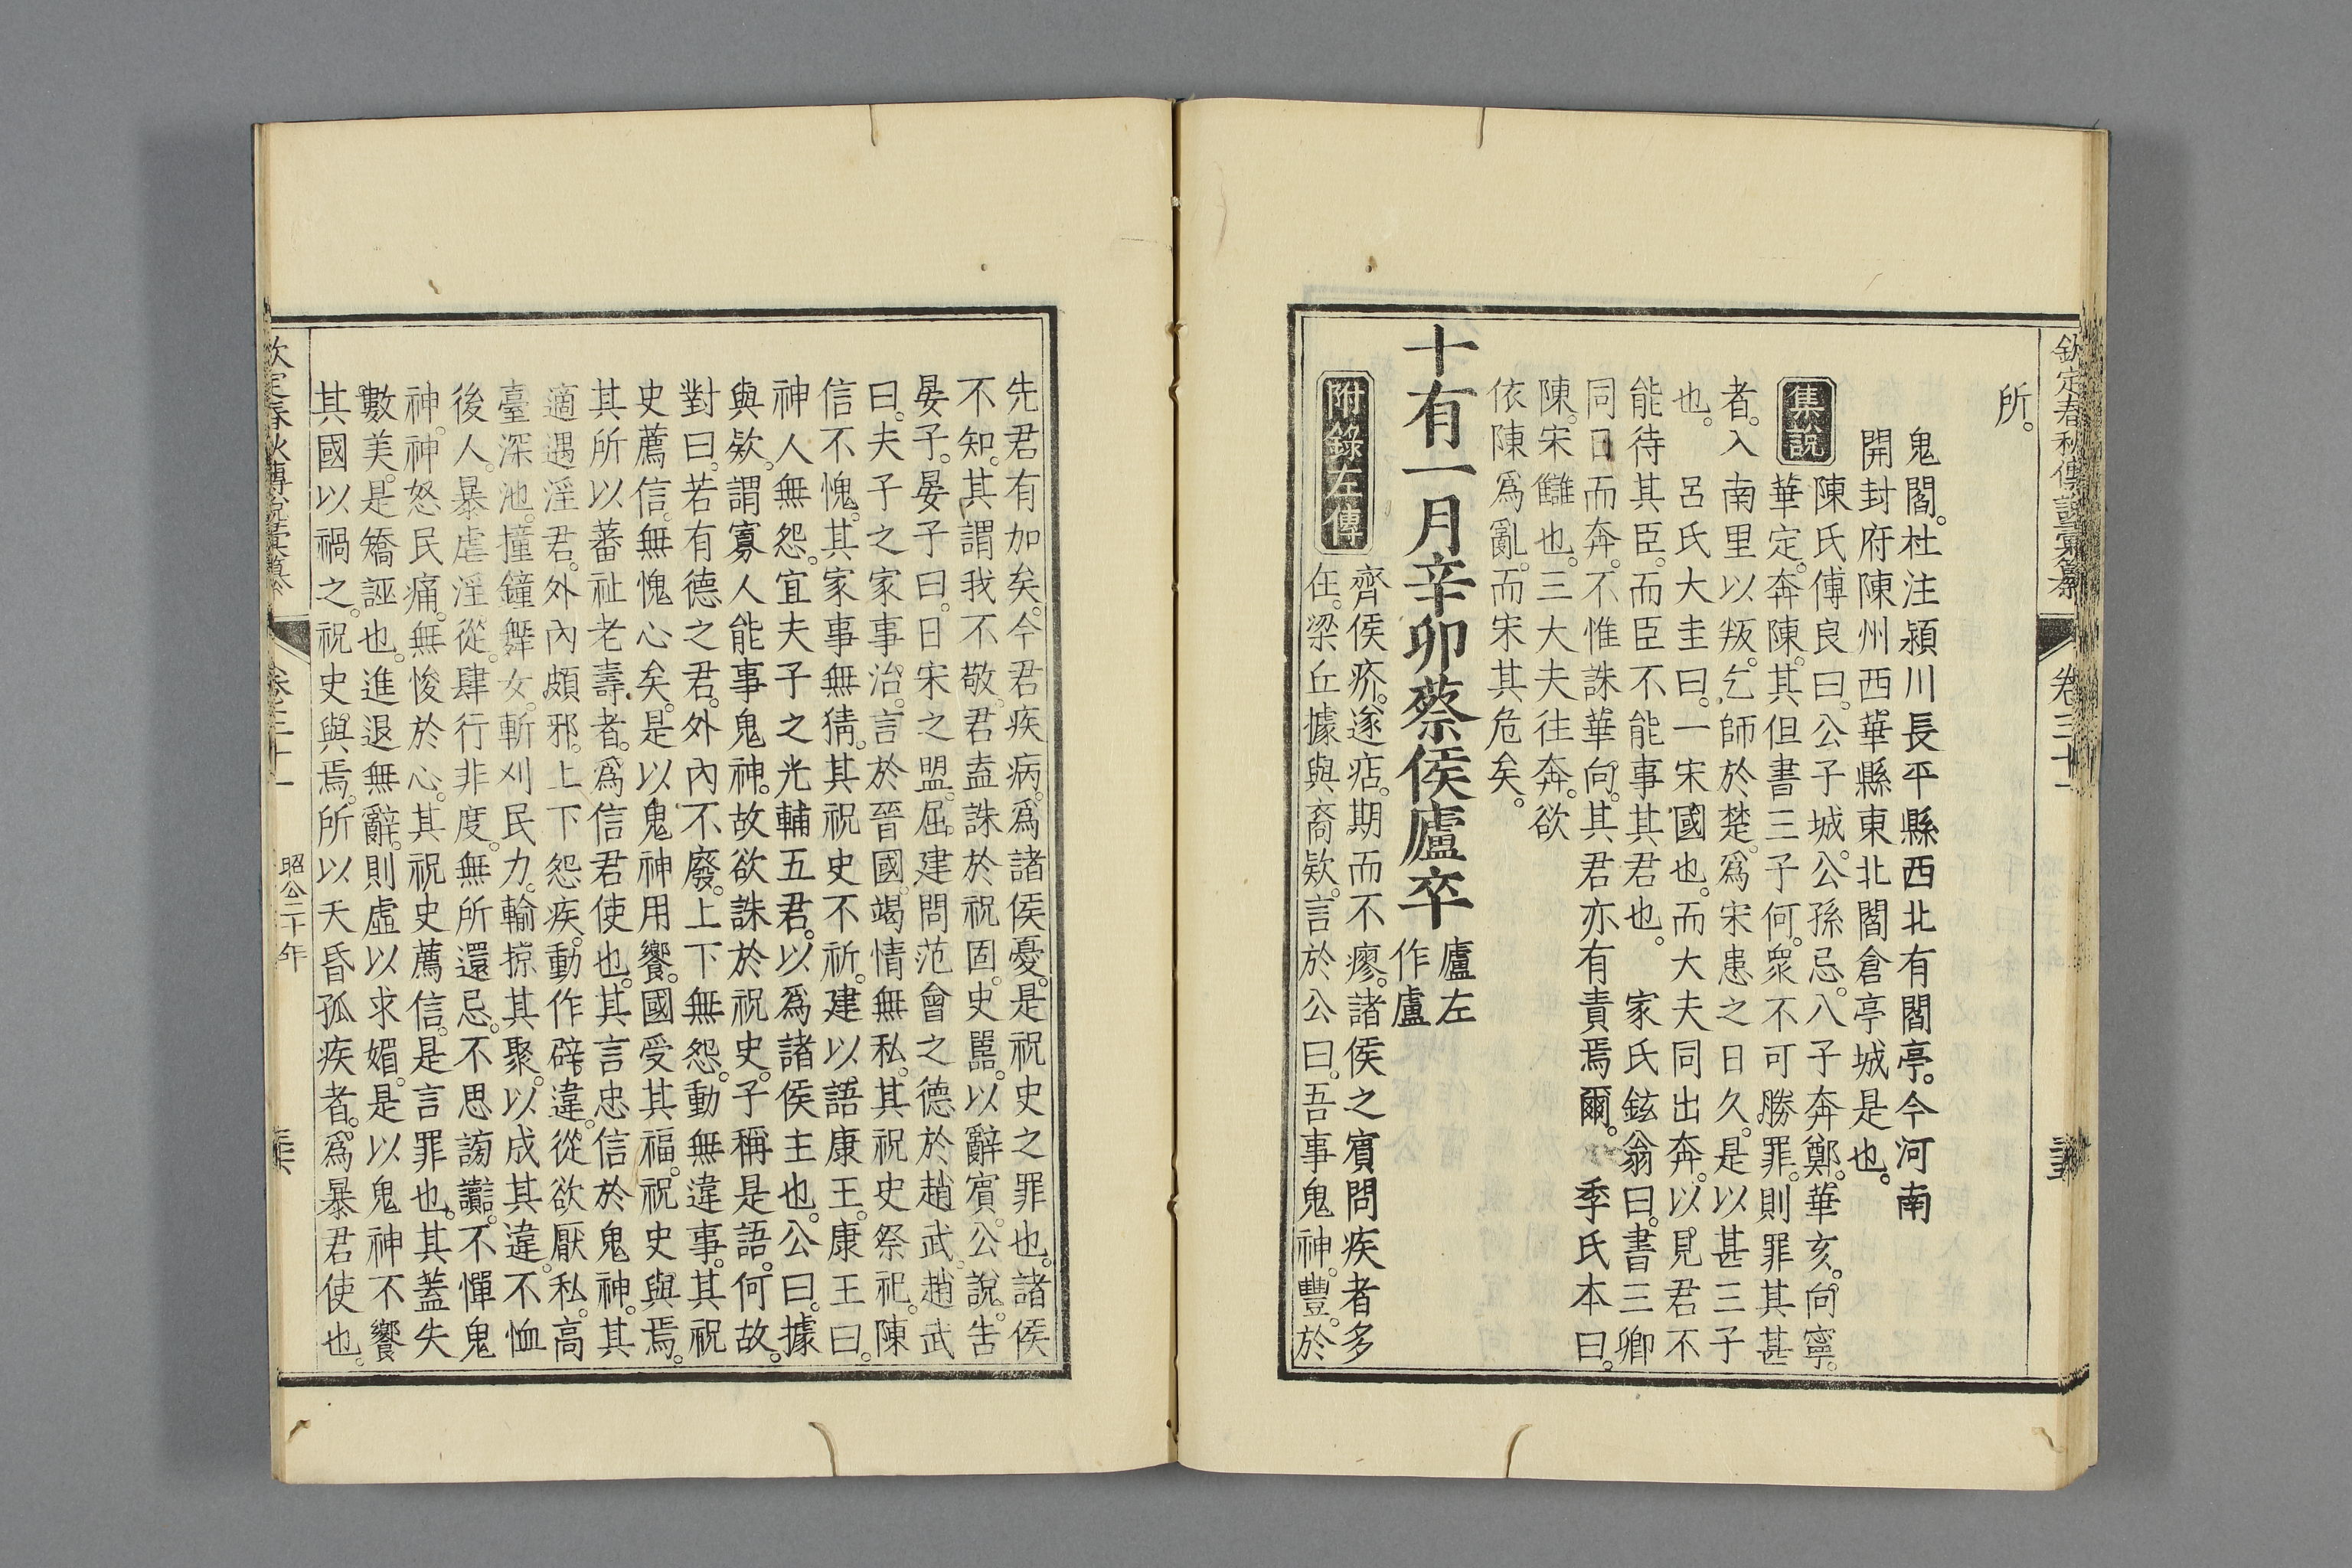 欽定春秋傳說彙纂 卷三十一
所。
鬼閻。杜注潁川長平縣西北有閻亭。今河南
開封府陳州西華縣東北閻倉亭城是也。
集說
陳氏傅良曰。公子城。公孫忌。八子奔鄭。華亥。向寧。
華定。奔陳。其但書三子何。衆不可勝罪。則罪其甚
者。入南里以叛。乞師於楚。爲宋患之日久。是以甚三子
也。 呂氏大圭曰。一宋國也。而大夫同出奔。以見君不
能待其臣。而臣不能事其君也。 家氏鉉翁曰。書三卿
同日而奔。不惟誅華向。其君亦有責焉爾。 季氏本曰。
陳。宋讎也。三大夫往奔。欲
依陳爲亂。而宋其危矣。
十有一月辛卯蔡侯廬卒
廬左
作盧
附錄左傳
齊侯疥。遂痁。期而不瘳。諸侯之賓問疾者多
在。梁丘據與裔欵。言於公曰。吾事鬼神。豐。於
先君有加矣。今君疾病。爲諸侯憂。是祝史之罪也。諸侯
不知。其謂我不敬。君盍誅於祝固。史嚚。以辭賓。公說。告
晏子。晏子曰。日宋之盟。屈建問范會之德於趙武。趙武
曰。夫子之家事治。言於晉國。竭情無私。其祝史祭祀。陳
信不愧。其家事無猜。其祝史不祈。建以語康王。康王曰。
神人無怨。宜夫子之光輔五君。以爲諸侯主也。公曰。據
與欵。謂寡人能事鬼神。故欲誅於祝史。子稱是語。何故。
對曰。若有德之君。外內不廢。上下無怨。動無違事。其祝
史薦信。無愧心矣。是以鬼神用饗。國受其福。祝史與焉。
其所以蕃祉老壽者。爲信君使也。其言忠信於鬼神。其
適遇淫君。外內頗邪。上下怨疾。動作辟違。從欲厭私。高
臺深池。撞鐘舞女。斬刈民力。輸掠其聚。以成其違。不恤
後人。暴虐淫從。肆行非度。無所還忌。不思謗讟。不憚鬼
神。神怒民痛。無悛於心。其祝史薦信。是言罪也。其蓋失
數美。是矯誣也。進退無辭。則虛以求媚。是以鬼神不饗
其國以禍之。祝史與焉。所以夭昏孤疾者。爲暴君使也。
欽定春秋傳說彙纂 卷三十一 昭公二十年